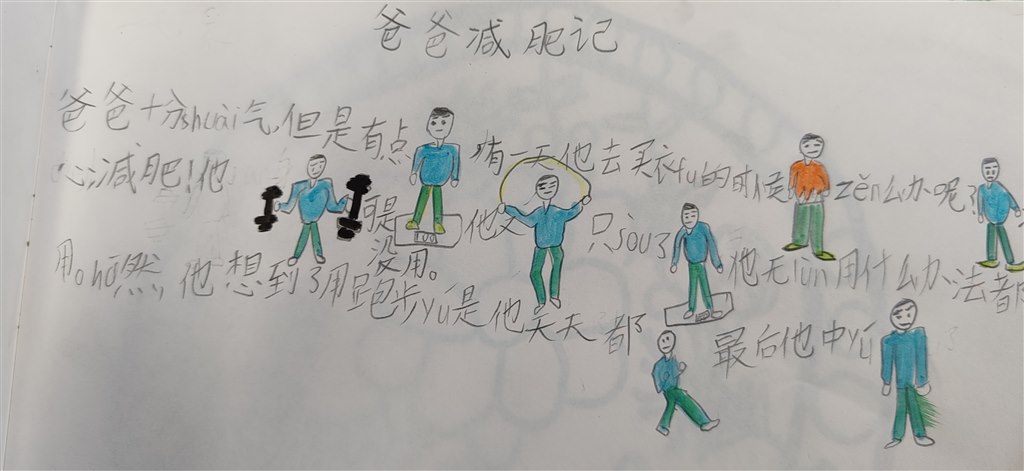 爸爸减肥记
爸爸十分shuài气,但是有点 有一天他去买衣fu的时候 zěn么办呢?
心减肥!他 可是没用。 他又 只sòu了 他无lùn用什么办法都
用。hū然他想到了用跑步yú是他天天都 最后他中yú
100